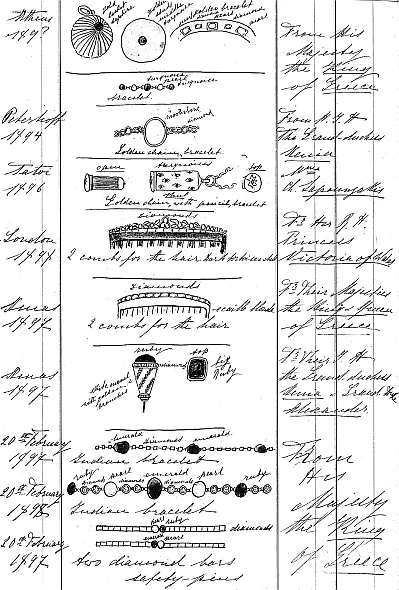 Athens
189?
golden
turquoise
golden bracelet
diamond
pearl
From His
Majesty
the King
of Greece
turquoise
pearl
turquoise
bracelet.
Peterhoff
1894
moonstone
diamond
Golden chain, bracelet
From H. I. H
The Grand duchess
Xenia
Tatoi
1896
open
turquoises
top
shut
Golden chain, with pencil, bracelet
Mme
Sapountzakis
London
1897
diamonds
2 combs for the hair
By Her R. H.
Princess
Victoria of Wales
Xmas
1897
Diamonds
2 combs for the hair
By Their Majesties
the King & Queen
of Greece
Xmas
1897
ruby
diamonds
top
big
Ruby
white enamel
with golden
branches
By Their I. H
the Grand duchess
Xenia & Grand Duke
Alexander.
20th February
1897
emerald
diamonds
emerald
Indian bracelet
From
His
Majesty
the King
of Greece
20th February
1898
ruby
diamond
pearl
diamonds
emerald
diamonds
pearl
diamond
ruby
Indian bracelet
20th February
1897
pearl ruby
diamonds
pearl
two diamond bars
safety-pins